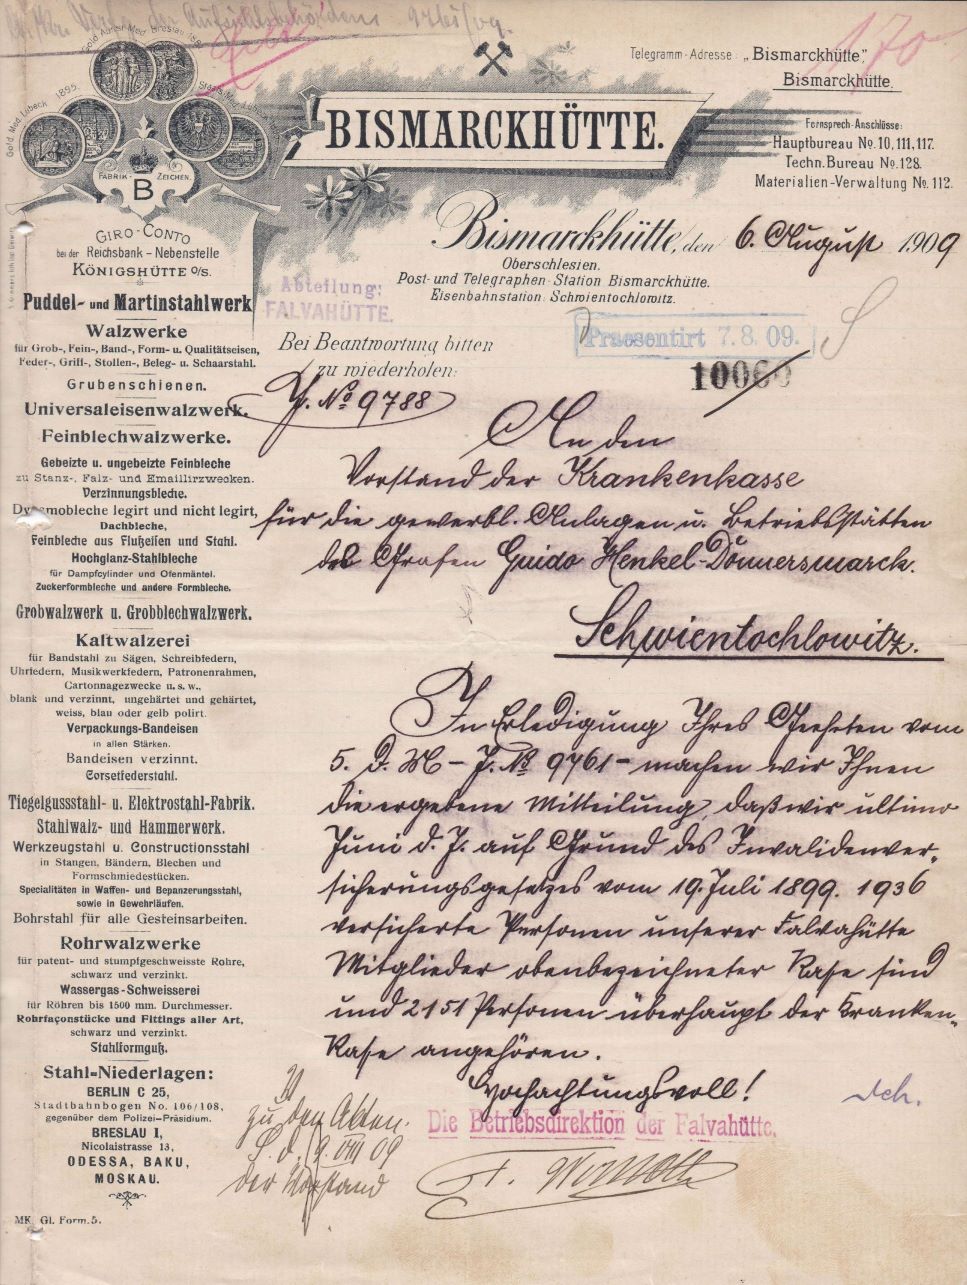 Gold. Med. Lübeck 1895.
FABRIK- ZEICHEN.
B
BISMARCKHÜTTE.
Telegramm-Adresse: „Bismarckhütte",
Bismarckhütte.
170
Fernsprech-Anschlüsse:
Hauptbureau No. 10, 111, 117.
Techn. Bureau No. 128.
Materialien-Verwaltung No. 112.
Bismarckhütte, den 6. August 1909
Oberschlesien.
Post- und Telegraphen-Station Bismarckhütte.
Eisenbahnstation: Schwientochlowitz.
GIRO-CONTO
bei der Reichsbank-Nebenstelle
KÖNIGSHÜTTE O/S.
Puddel- und Martinstahlwerk
Walzwerke
für Grob-, Fein-, Band-, Form- u. Qualitätseisen,
Feder-, Griff-, Stollen-, Beleg- u. Schaarstahl.
Grubenschienen.
Universaleisenwalzwerk.
Feinblechwalzwerke.
Gebeizte u. ungebeizte Feinbleche
zu Stanz-, Falz- und Emaillirzwecken.
Verzinnungsbleche.
Dynamobleche legirt und nicht legirt,
Dachbleche,
Feinbleche aus Flußeisen und Stahl.
Hochglanz-Stahlbleche
für Dampfcylinder und Ofenmäntel.
Zuckerformbleche und andere Formbleche.
Grobwalzwerk u. Grobblechwalzwerk.
Kaltwalzerei
für Bandstahl zu Sägen, Schreibfedern,
Uhrfedern, Musikwerkfedern, Patronenrahmen,
Cartonnagezwecke u. s. w.,
blank und verzinnt, ungehärtet und gehärtet,
weiss, blau oder gelb polirt.
Verpackungs-Bandeisen
in allen Stärken.
Bandeisen verzinnt.
Corsetfederstahl.
Tiegelgussstahl- u. Elektrostahl-Fabrik.
Stahlwalz- und Hammerwerk.
Werkzeugstahl u. Constructionsstahl
in Stangen, Bändern, Blechen und
Formschmiedestücken.
Specialitäten in Waffen- und Bepanzerungsstahl,
sowie in Gewehrläufen.
Bohrstahl für alle Gesteinsarbeiten.
Rohrwalzwerke
für patent- und stumpfgeschweisste Rohre,
schwarz und verzinkt.
Wassergas-Schweisserei
für Röhren bis 1500 mm. Durchmesser.
Rohrfaçonstücke und Fittings aller Art,
schwarz und verzinkt.
Stahlformguß.
Stahl-Niederlagen:
BERLIN C 25,
Stadtbahnbogen No. 106/108,
gegenüber dem Polizei-Präsidium.
BRESLAU I,
Nicolaistrasse 13,
ODESSA, BAKU,
MOSKAU.
MK. Gl. Form. 5.
Abteilung:
FALVAHÜTTE.
Bei Beantwortung bitten
zu wiederholen:
J. No 9788
Praesentirt 7.8.09.
10060
An den
Vorstand der Krankenkasse
für die gewerbl. Anlagen u. Betriebsstätten
des Grafen Guido Henkel-Donnersmarck.
Schwientochlowitz.
In Erledigung Ihres Geehrten vom
5. d. M – J. No 9761 – machen wir Ihnen
die ergebene Mitteilung, daß wir ultimo
Juni d. J. auf Grund des Invalidenver-
sicherungsgesetzes vom 19. Juli 1899. 1936
versicherte Personen unserer Falvahütte
Mitglieder obenbezeichneter Kasse sind
und 2151 Personen überhaupt der Kranken-
Kasse angehören.
Hochachtungsvoll!
Die Betriebsdirektion der Falvahütte.
zu den Akten.
S. d. 9. VIII 09
der Vorstand